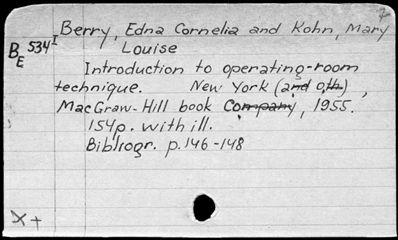 Berry, Edna Cornelia and Kohn, Mary
BE 534I
Louise
Introduction to operating-room
technique. New York (and oth),
MacGraw-Hill book Company, 1955.
154p. with ill.
Bibliogr. p.146-148
X+